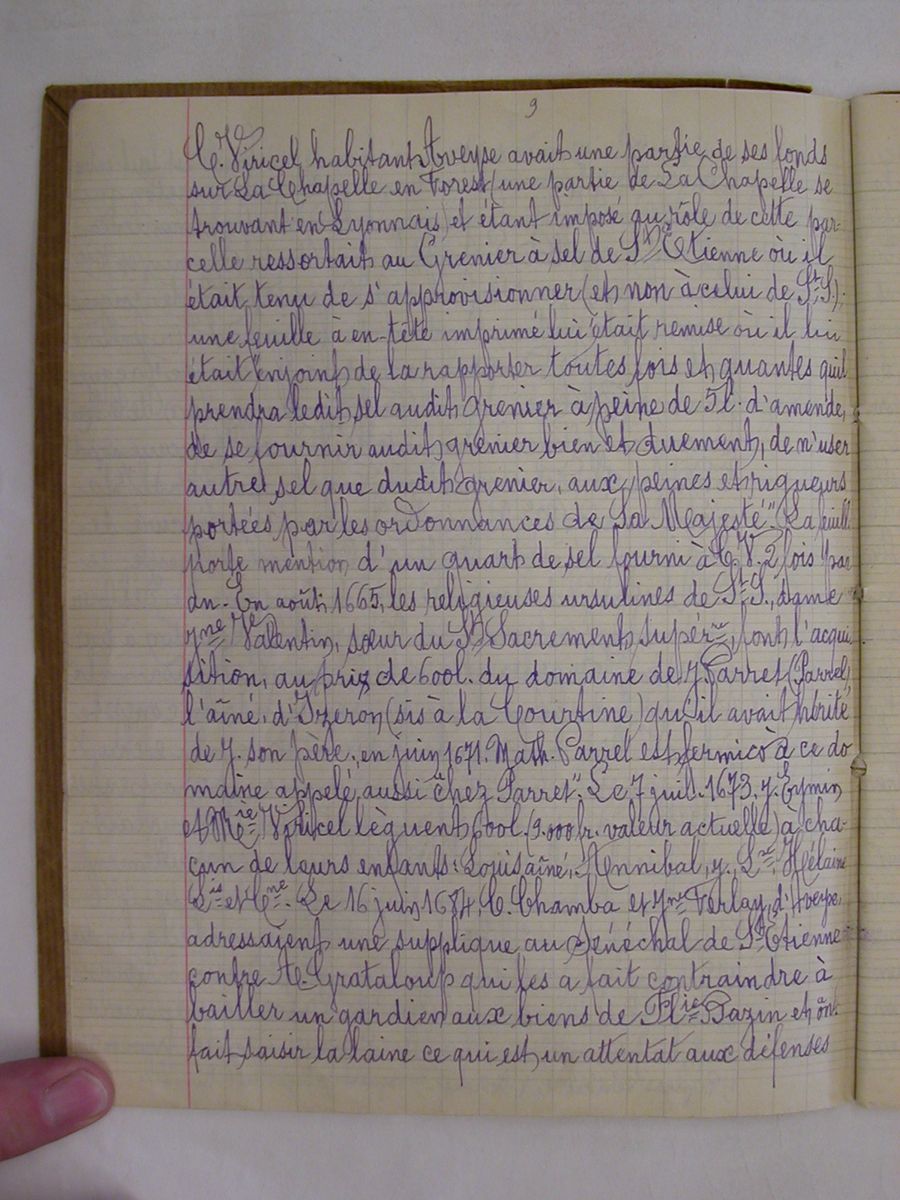 9
C. Viricel, habitant Aveyse avait une partie de ses fonds
sur La Chapelle en Forest (une partie de La Chapelle se
trouvant en Lyonnais) et étant imposé au rôle de cette par-
celle ressortait au Grenier à sel de St Etienne où il
était tenu de s'approvisionner (et non à celui de St S.);
une feuille à en-tête imprimé lui était remise où il lui
était "enjoint de la rapporter toutes fois et quantes qu'il
prendra ledit sel audit grenier à peine de 5l. d'amende,
de se fournir audit grenier bien et duement, de n'user
autre sel que dudit grenier, aux peines et rigueurs
portées par les ordonnances de Sa Majesté". La feuill
porte mention d'un quart de sel fourni à C. V. 2 fois par
an. En août 1665, les religieuses ursulines de St S., dame
Jne Valentin, sœur du St Sacrement supére, font l'acqui
sition, au prix de 600l. du domaine de J. Parret (Parrel)
l'aîné, d'Yzeron (sis à la Courtine) qu'il avait hérité
de J. son père, en juin 1671. Math. Parrel est fermier à ce do
maine appelé aussi "chez Parret". Le 7 juil. 1673, J. Eymin
et Mie Viricel lèguent 600l. (9.000fr. valeur actuelle) à cha-
cun de leurs enfants: Louis aîné, Annibal, J., Hélaine
Lse et Cne. Le 16 juin 1674, C. Chamba et Jne Ferlay, d'Aveyze,
adressaient une supplique au Sénéchal de St Etienne
contre A. Grataloup qui les a fait contraindre à
bailler un gardien aux biens de Plie Bazin et ont
fait saisir la laine ce qui est un attentat aux défenses